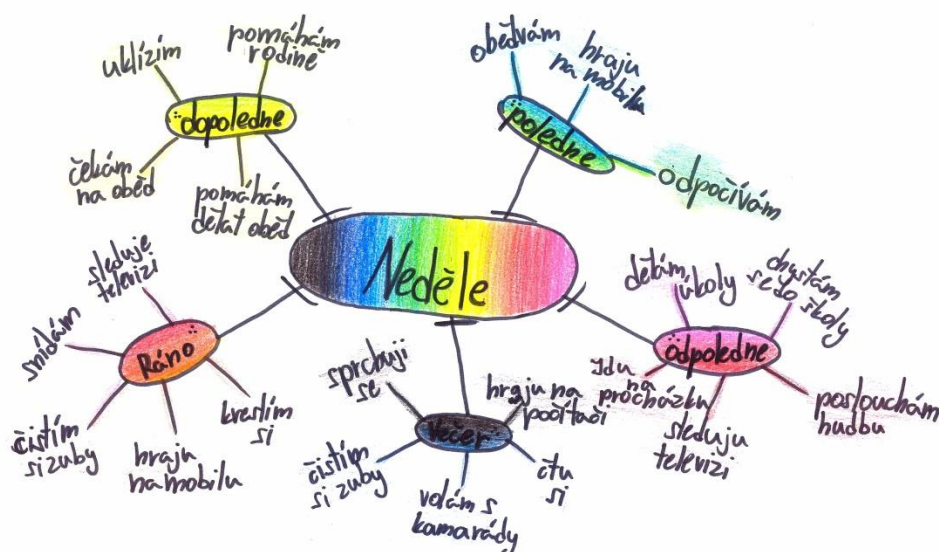 Neděle
dopoledne
uklízím
pomáhám
rodině
čekám
na oběd
pomáhám
dělat oběd
poledne
obědvám
hraju
na mobilu
odpočívám
odpoledne
dělám
úkoly
chystám
se do školy
Jdu
na
procházku
sleduju
televizi
poslouchám
hudbu
večer
sprchuji
se
hraju na
počítači
čistím
si zuby
volám s
kamarády
čtu
si
Ráno
sleduje
televizi
snídám
čistím
si zuby
hraju
na mobilu
kreslím
si